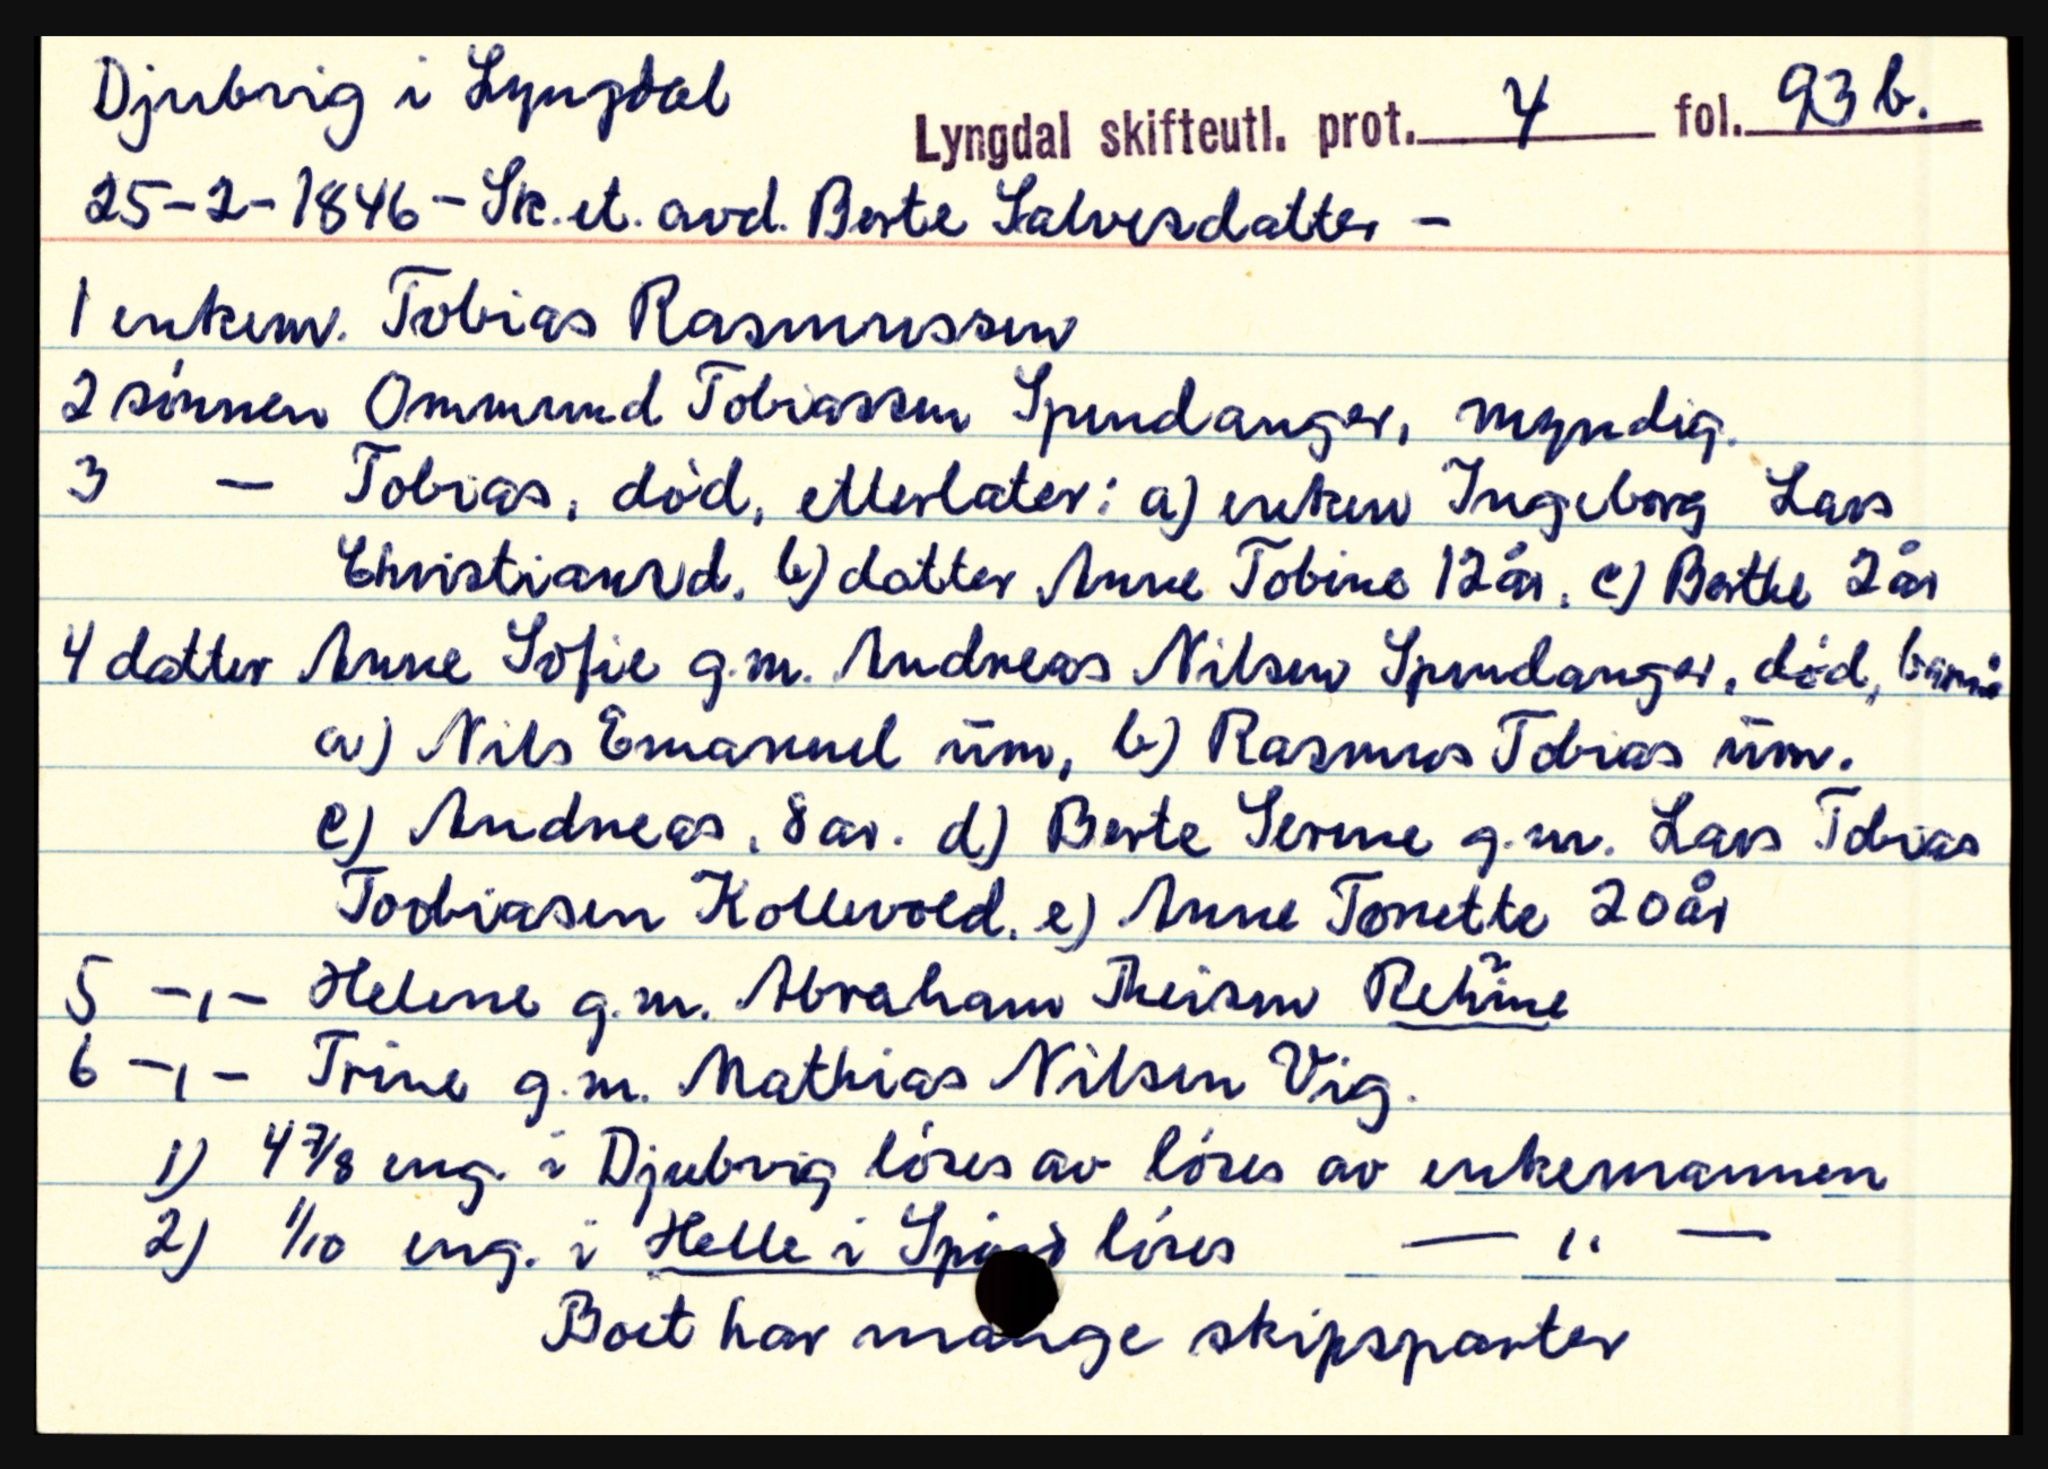 Djubvig i Lyngdal
Lyngdal skifteutl. prot. 4 fol. 93 b.
25-2-1846 - Sk. et. avd. Berte Salvesdatter -
1 enkem. Tobias Rasmussen
2 sönnen Ommund Tobiassen Spindanger, myndig.
3 — Tobias, död, etterlater: a) enken Ingeborg Lars
Christiansd. b) datter Anne Tobine 12 år. c) Berthe 2 år
4 datter Anne Sofie g.m. Andreas Nilsen Spindanger, död,
a) Nils Emanuel üm, b) Rasmus Tobias üm.
c) Andreas, 8 ar. d) Berte Serine g.m. Lars Tobias
Tobiasen Kollevold. e) Anne Tonette 20 år
5 -,- Helene g.m. Abraham Theisen
6 -,- Trine g.m. Mathias Nilsen Vig.
1) 4 7/8 eng. i Djubvig löses av löses av enkemannen
2) 1/10 eng. i Helle i Spind löses — ,, —
Boet har mange skipsparter